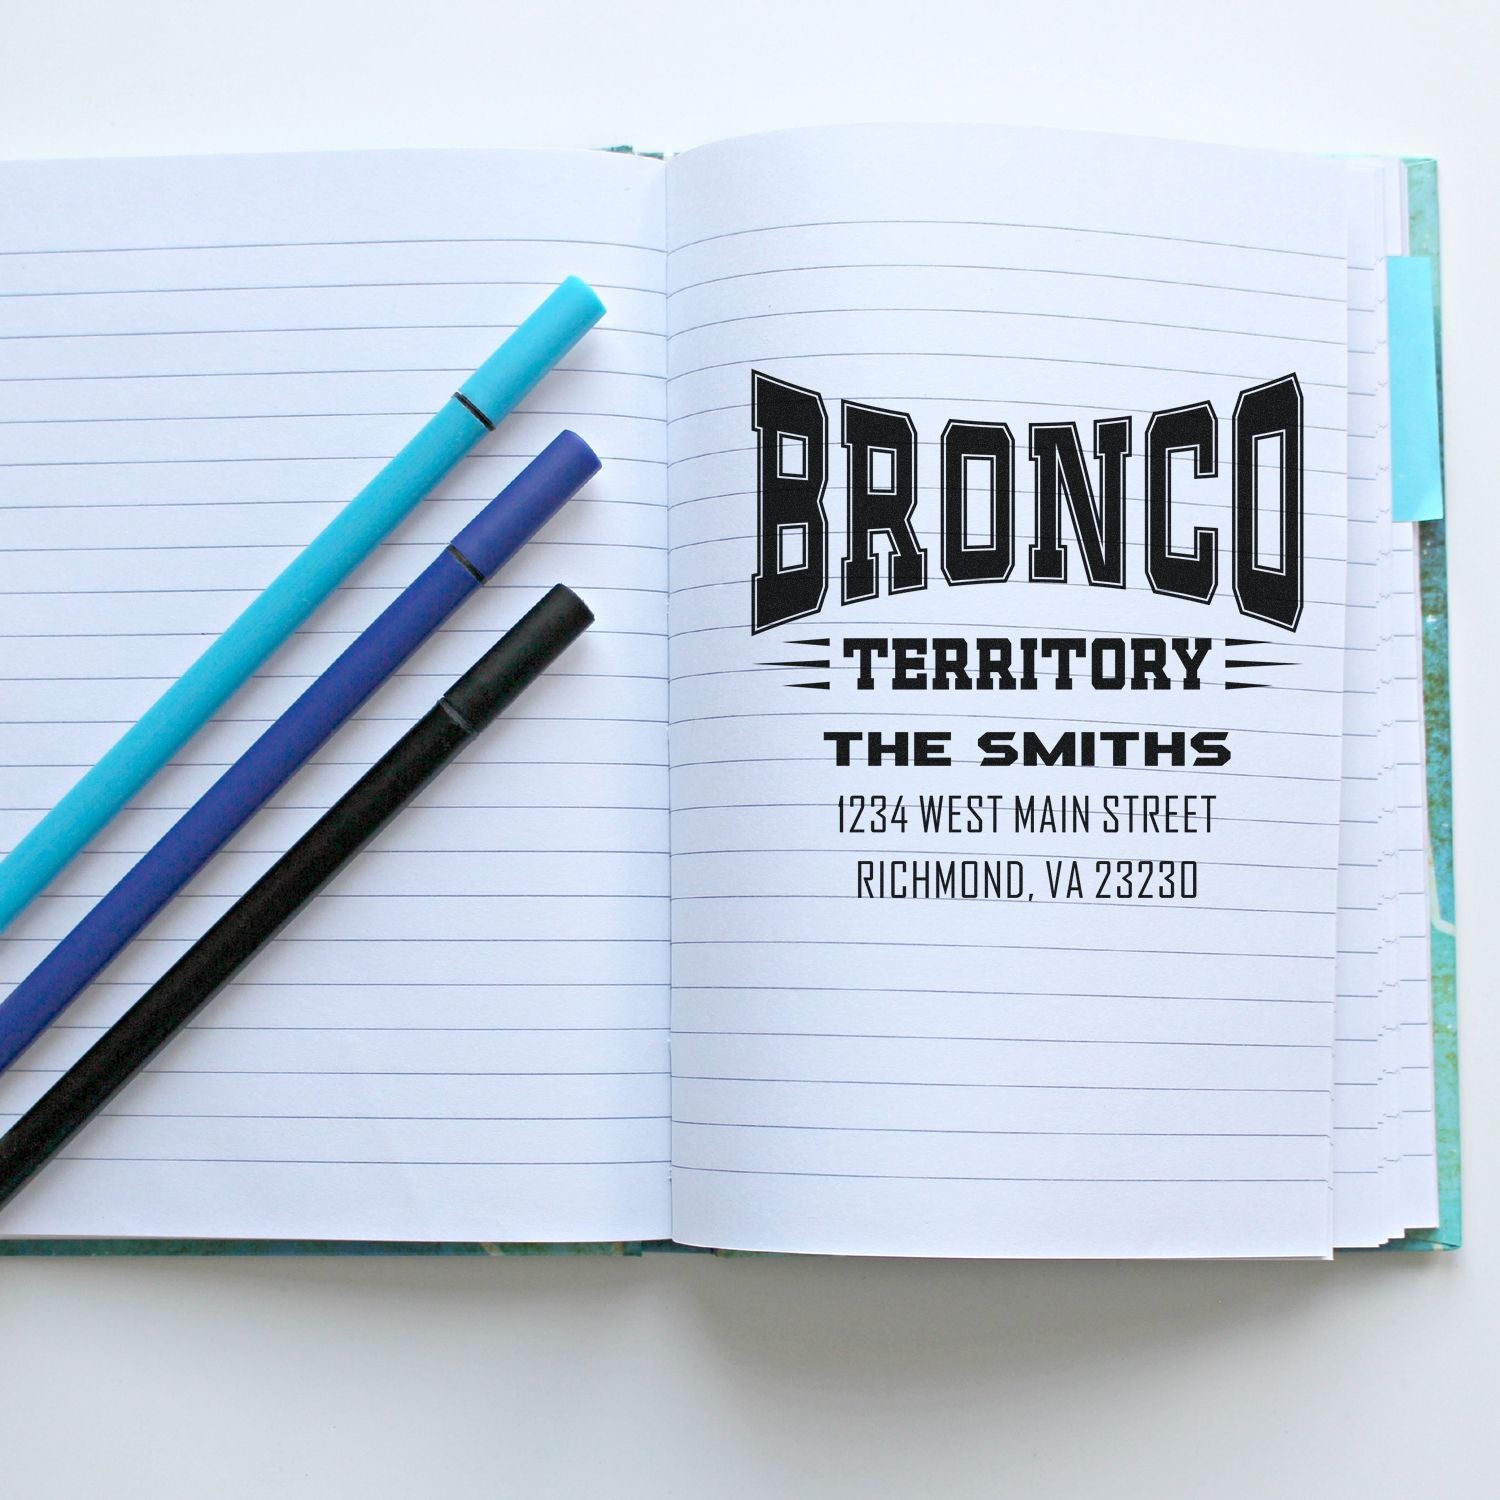 BRONCO
TERRITORY
THE SMITHS
1234 WEST MAIN STREET
RICHMOND, VA 23230